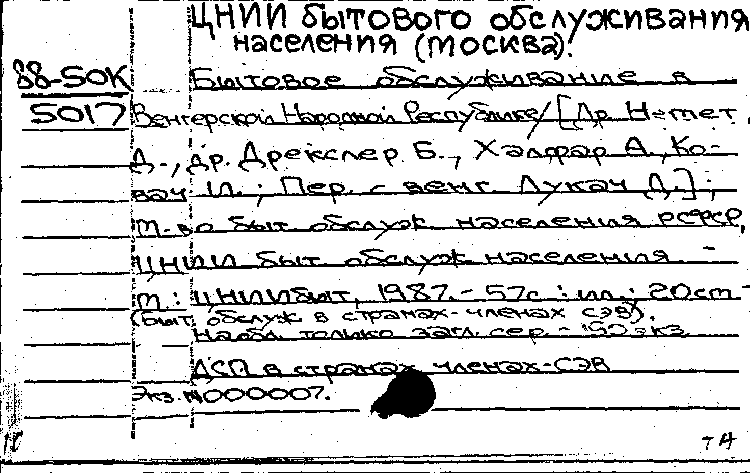 ЦНИИ бытового обслуживания
населения (Москва).
88-50К
5017
Бытовое обслуживание в
Венгерской Народной Республике/[Др. Немет
Д., др. Дрекслер Б., Халфар А., Ко-
вач И.; Пер. с венг. Лукач Д.];
М-во быт. обслуж. населения РСФСР,
ЦНИИ быт. обслуж. населения. -
М.: ЦНИИбыт, 1987. - 57с.: ил.; 20см -
(Быт. обслуж. в странах-членах СЭВ).
Надл. только загл. сер. - 150 экз.
ДСП в странах-членах СЭВ
Экз. №000007.